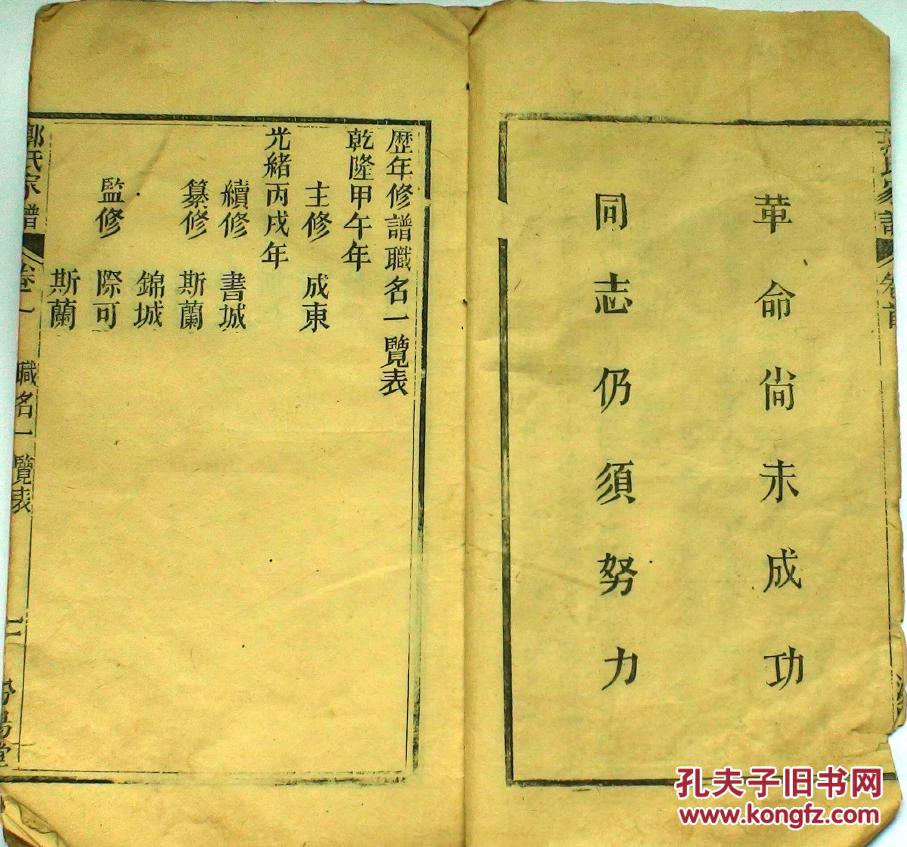 革命尚未成功
同志仍須努力
歷年修譜職名一覽表
乾隆甲午年
主修 成東
光緒丙戌年
續修 書城
纂修 斯蘭
錦城
監修 際可
斯蘭
郭氏家譜 卷一 職名一覽表 二 汾陽堂
氏家譜 卷首
孔夫子旧书网
www.kongfz.com